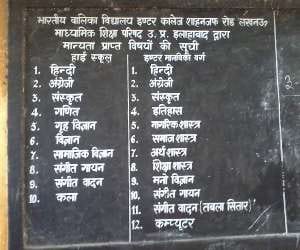 भारतीय बालिका विद्यालय इण्टर कालेज शाहनजफ रोड लखनऊ
माध्यमिक शिक्षा परिषद उ. प्र. इलाहाबाद द्वारा
मान्यता प्राप्त विषयों की सूची
हाई स्कूल
1. हिन्दी
2. अंग्रेजी
3. संस्कृत
4. गणित
5. गृह विज्ञान
6. विज्ञान
7. सामाजिक विज्ञान
8. संगीत गायन
9. संगीत वादन
10. कला
इण्टर मानविकी वर्ग
1. हिन्दी
2. अंग्रेजी
3. संस्कृत
4. इतिहास
5. नागरिक शास्त्र
6. समाज शास्त्र
7. अर्थ शास्त्र
8. शिक्षा शास्त्र
9. मनो विज्ञान
10. संगीत गायन
11. संगीत वादन (तबला सितार)
12. कम्प्यूटर